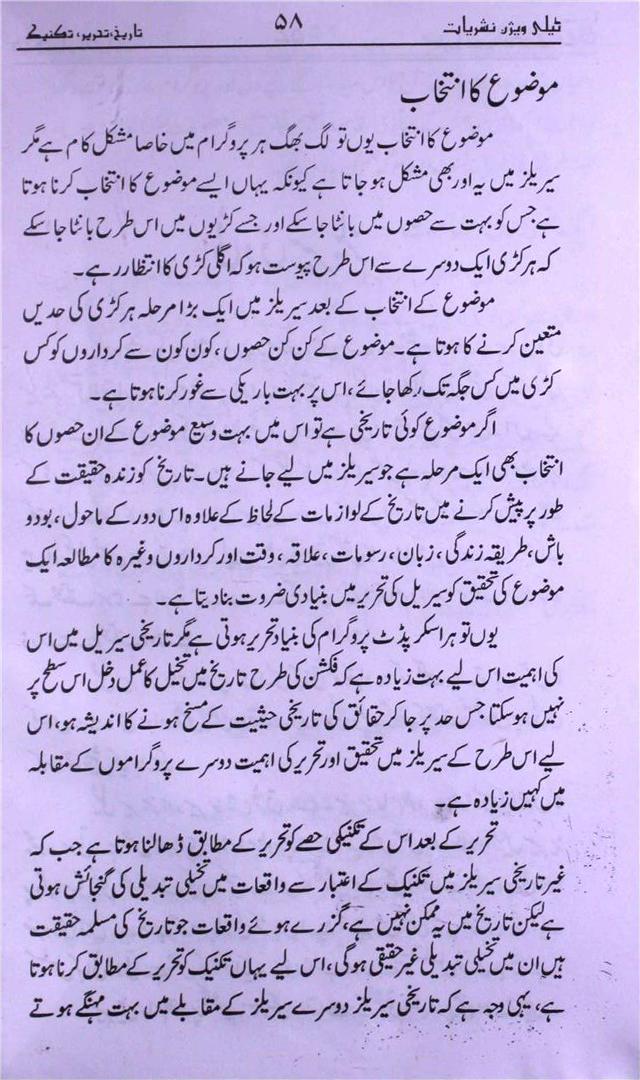 ٹیلی ویژن نشریات ۵۸ تاریخ، تحریر، تکنیک
موضوع کا انتخاب
موضوع کا انتخاب یوں تو لگ بھگ ہر پروگرام میں خاصا مشکل کام ہے مگر
سیریلز میں یہ اور بھی مشکل ہو جاتا ہے کیونکہ یہاں ایسے موضوع کا انتخاب کرنا ہوتا
ہے جس کو بہت سے حصوں میں بانٹا جا سکے اور جسے کڑیوں میں اس طرح بانٹا جا سکے
کہ ہر کڑی ایک دوسرے سے اس طرح پیوست ہو کہ اگلی کڑی کا انتظار رہے۔
موضوع کے انتخاب کے بعد سیریلز میں ایک بڑا مرحلہ ہر کڑی کی حدیں
متعین کرنے کا ہوتا ہے۔ موضوع کے کن کن حصوں، کون کون سے کرداروں کو کس
کڑی میں کس جگہ تک رکھا جائے، اس پر بہت باریکی سے غور کرنا ہوتا ہے۔
اگر موضوع کوئی تاریخی ہے تو اس میں بہت وسیع موضوع کے ان حصوں کا
انتخاب بھی ایک مرحلہ ہے جو سیریلز میں لیے جانے ہیں۔ تاریخ کو زندہ حقیقت کے
طور پر پیش کرنے میں تاریخ کے لوازمات کے لحاظ کے علاوہ اس دور کے ماحول، بود و
باش، طریقہ زندگی، زبان، رسومات، علاقہ، وقت اور کرداروں وغیرہ کا مطالعہ ایک
موضوع کی تحقیق کو سیریل کی تحریر میں بنیادی ضروت بنا دیتا ہے۔
یوں تو ہر اسکرپٹڈ پروگرام کی بنیاد تحریر ہوتی ہے مگر تاریخی سیریل میں اس
کی اہمیت اس لیے بہت زیادہ ہے کہ فکشن کی طرح تاریخ میں تخیل کا عمل دخل اس سطح پر
نہیں ہو سکتا جس حد پر جا کر حقائق کی تاریخی حیثیت کے مسخ ہونے کا اندیشہ ہو، اس
لیے اس طرح کے سیریلز میں تحقیق اور تحریر کی اہمیت دوسرے پروگراموں کے مقابلہ
میں کہیں زیادہ ہے۔
تحریر کے بعد اس کے تکنیکی حصے کو تحریر کے مطابق ڈھالنا ہوتا ہے جب کہ
غیر تاریخی سیریلز میں تکنیک کے اعتبار سے واقعات میں تخیلی تبدیلی کی گنجائش ہوتی
ہے لیکن تاریخ میں یہ ممکن نہیں ہے، گزرے ہوئے واقعات جو تاریخ کی مسلمہ حقیقت
ہیں ان میں تخیلی تبدیلی غیر حقیقی ہوگی، اس لیے یہاں تکنیک کو تحریر کے مطابق کرنا ہوتا
ہے، یہی وجہ ہے کہ تاریخی سیریلز دوسرے سیریلز کے مقابلے میں بہت مہنگے ہوتے